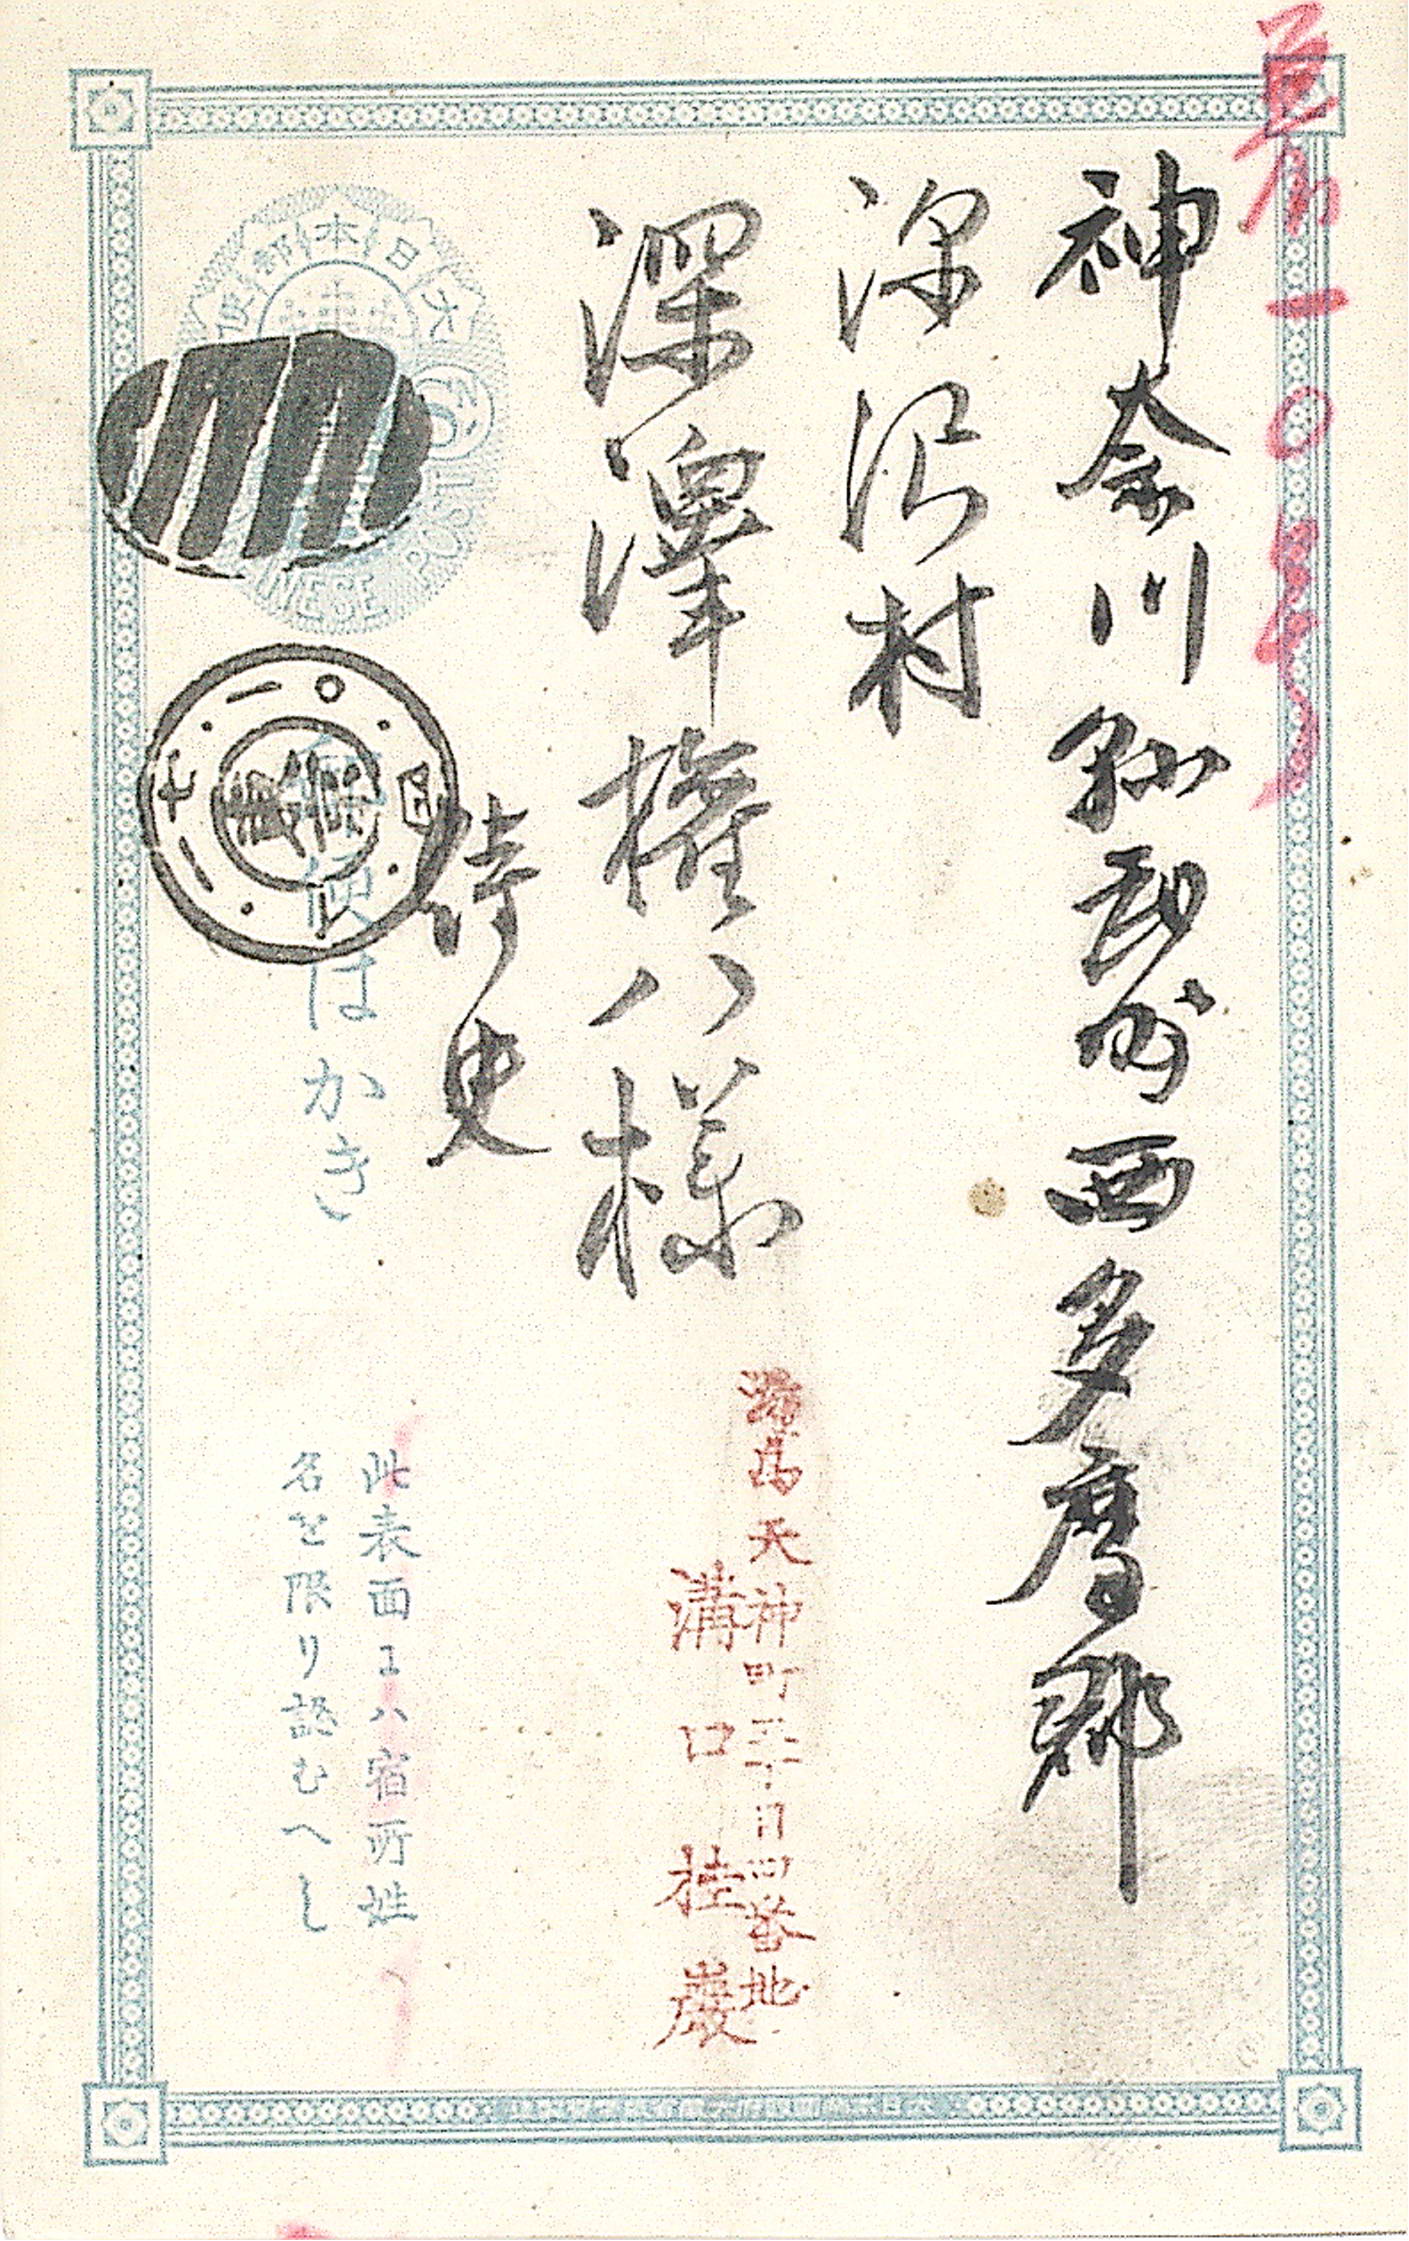 神奈川縣武州西多摩郡
深沢村
深澤権八様
侍史
湯島天神町三丁目四番地
溝口桂巖
大日本郵便
JAPANESE POST
郵便はかき
此表面ニハ宿所姓
名を限り認むへし